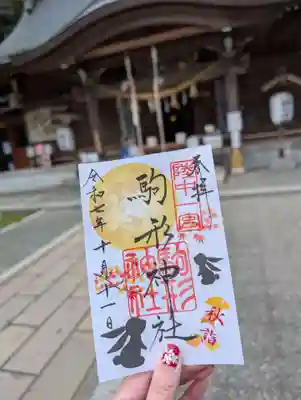 奉拝
陸中一宮
駒形神社
駒形神社
令和七年十月十一日
秋詣